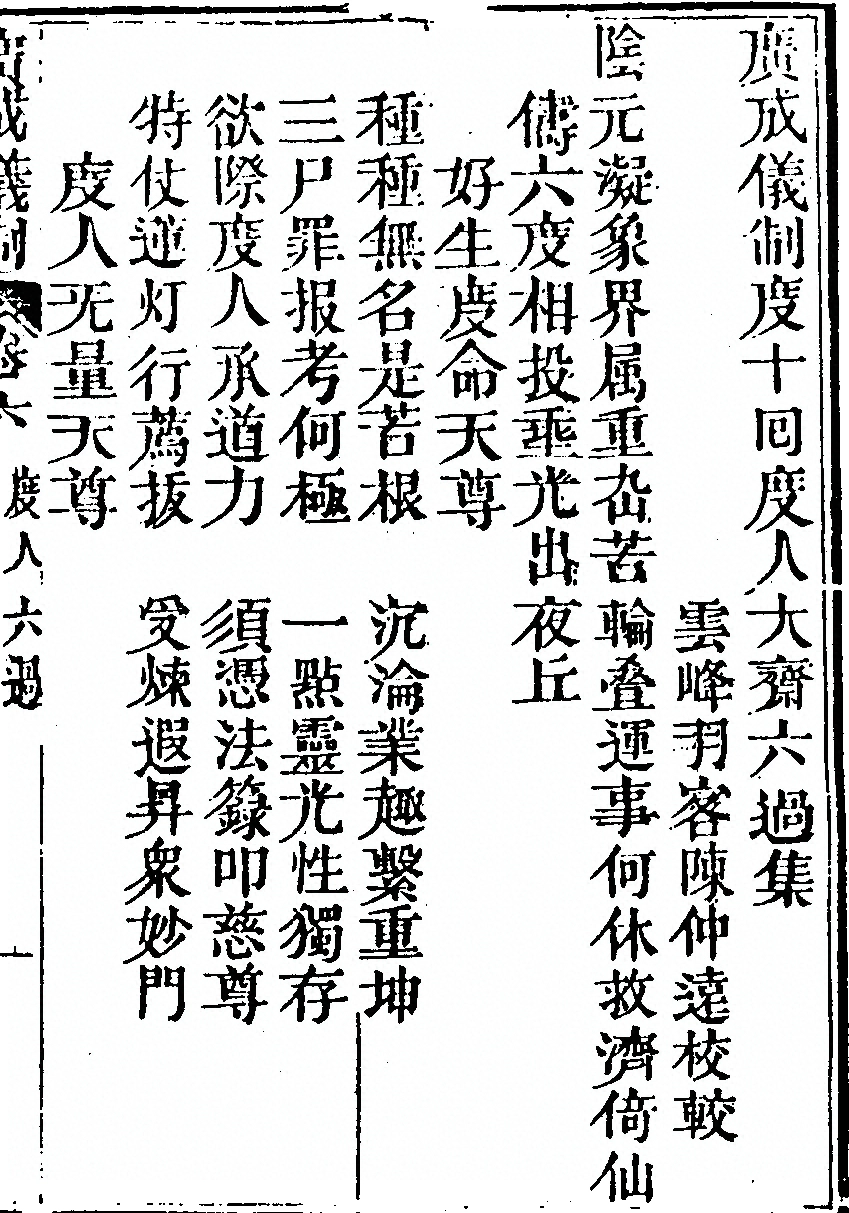 廣成儀制度十回度人大齋六過集
雲峰羽客陳仲遠校較
陰元凝象界属重岙苦輪叠運事何休救濟倚仙
儔六度相投乖光出夜丘
好生度命天尊
種種無名是苦根　沉淪業趣繫重坤
三尸罪报考何極　一點靈光性獨存
欲際度人承道力　須憑法籙叩慈尊
特仗蓮灯行薦拔　受煉遐昇衆妙門
度人无量天尊
廣成儀制卷六　度人六過　一